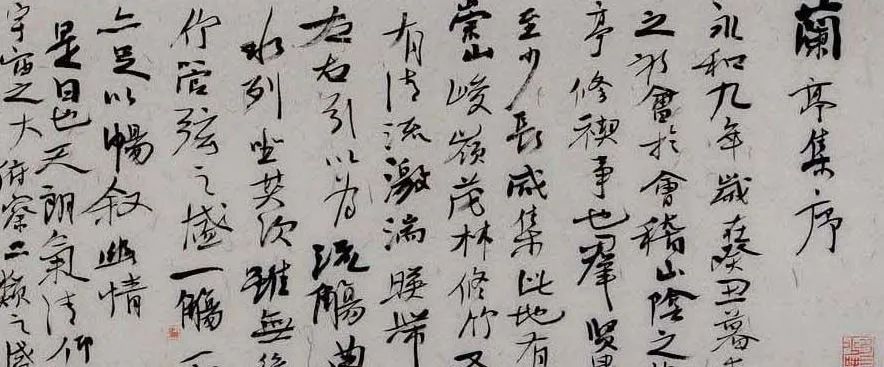 蘭亭集序
永和九年歲在癸丑暮春
之初會於會稽山陰之
亭修禊事也羣賢畢
至少長咸集此地有
崇山峻嶺茂林修竹又
有清流激湍暎帶
左右引以為流觴曲
水列坐其次雖無絲
竹管弦之盛一觴一
亦足以暢叙幽情
是日也天朗氣清仰
宇宙之大俯察品類之盛